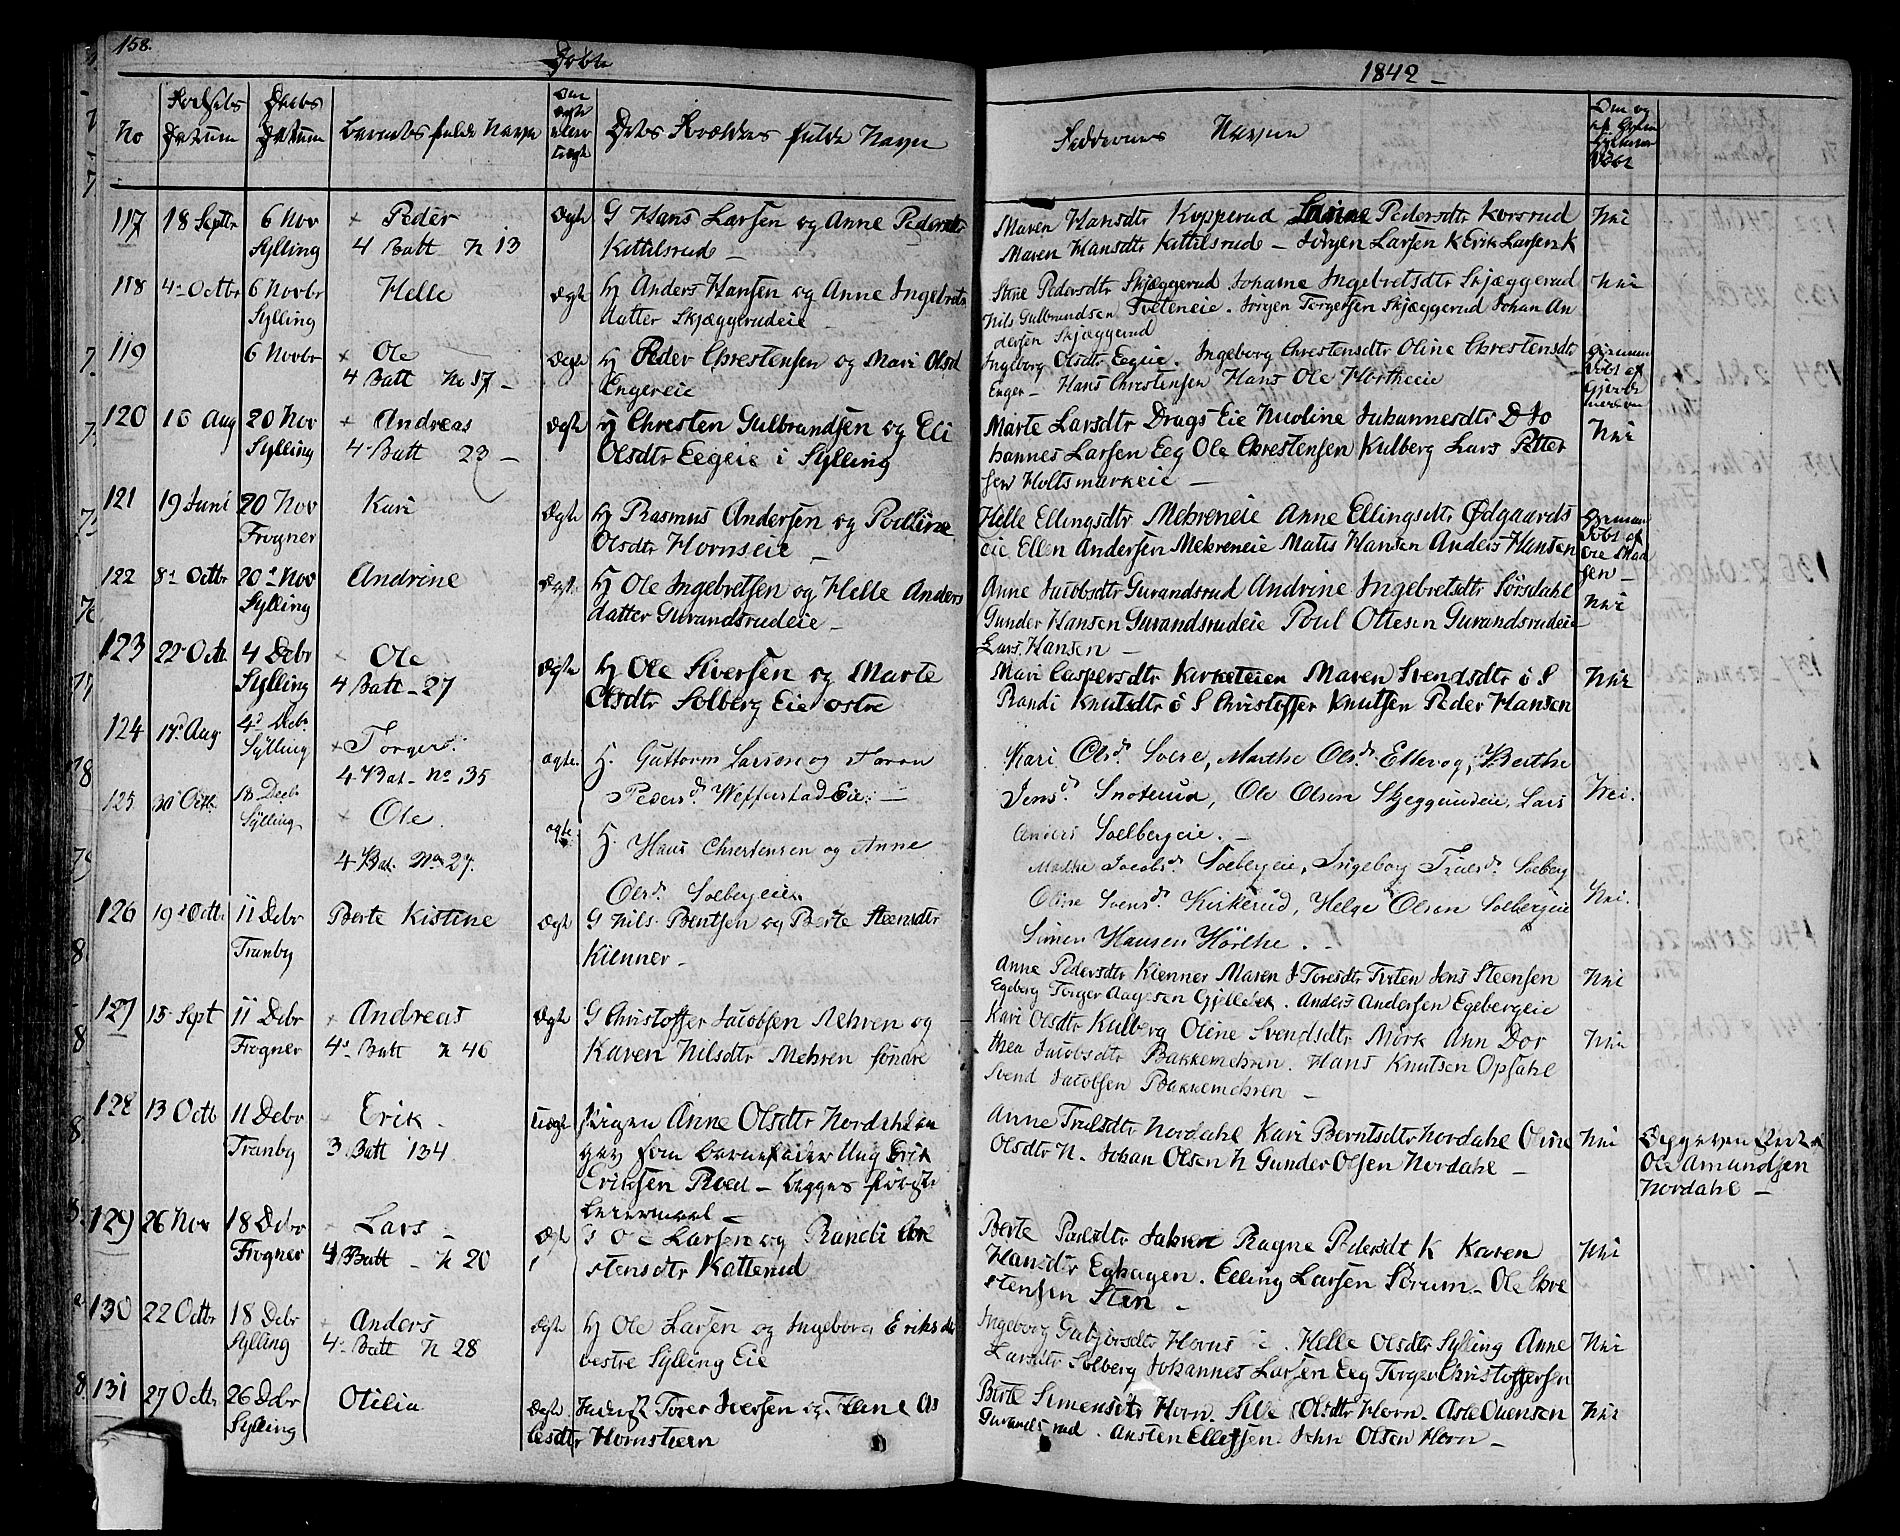 158.
Døbte
1842 –
No
Fødsels Datum
Daabs Datum
Barnets fulde Navn
Om ægte eller uægte
Dets Forældres fulde Navn
Faddernes Navne
117 18 Septbr 6 Nov Sylling
+ Peder
4 Batt N 13
Ægte
G Hans Larsen og Anne Pedersdtr
Kittilsrud –
Maren Hansdtr Kopperud Pedersdtr Korsrud
Maren Hansdtr Kittilsrud – Jørgen Larsen K Erik Larsen K
Nei
118 4 Octbr 6 Novbr Sylling
Helle
Ægte
Hj Anders Hansen og Anne Ingebrets
datter Skjæggerudeie –
Stine Pedersdtr Skjæggerud Johanne Ingebretsdtr Skjæggerud
Nils Gulbrandsen Tveteneie. Jørgen Torgersen Skjæggerud Johan An
dersen Skjæggerud
Nei
119 6 Novbr
+ Ole
4 Batt No 17 –
Ægte
Hj Peder Christensen og Mari Olsd
Engereie
Ingeborg Olsdtr Eegeie. Ingeborg Chrestensdtr Oline Chrestensdtr
Enger – Hans Chrestensen Hans Ole Hørtheeie
120 16 Aug 20 Nov Sylling
+ Andreas
4 Batt 23 –
Ægte
Hj Chresten Gulbrandsen og Eli
Olsdtr Eegeie i Sylling
Marte Larsdtr Drags Eie Nicoline Johannesdtr D Jo
hannes Larsen Eeg Ole Chrestensen Kulberg Lars Petter
sen Holtsmarkeie –
Nei
121 19 Juni 20 Nov Frogner
Kari
Ægte
Hj Rasmus Andersen og Pouline
Olsdtr Hornseie –
Helle Ellingsdtr Mehreneie Anne Ellingsdtr Ødgaards
eie Ellen Andersen Mehreneie Matis Hansen Anders Hansen
122 8 Octbr 20 Nov Sylling
Andrine
Ægte
Hj Ole Ingebretsen og Helle Anders
datter Gurandsrudeie –
Anne Jacobsdtr Gurandsrud Andrine Ingebretsdtr Sørsdahl
Gunder Hansen Gurandsrudeie Poul Ottesen Gurandsrudeie
Lars Hansen –
Nei
123 22 Octb 4 Debr Sylling
+ Ole
4 Batt – 27
Ægte
Hj Ole Siversen og Marte
Olsdtr Solberg Eie østre
Mari Caspersdtr Kirketeien Maren Svendsdtr ø S
Randi Knutsdtr ø S Christoffer Knutsen Peder Hansen
Nei
124 17 Aug 4 Decb. Sylling
+ Torger.
4 Bat – No 35
ægte.
Hj. Guttorm Larsen og Toran
Pedersd. Wefferstad Eie. –
Kari Olsd. Svere, Marthe Olsd. Ellevog, Berthe
Jensd. Snoterud, Ole Olsen Skjeggerudeie, Lars
Anders Solbergeie. –
Nei.
125 30 Octb. 18 Decb. Sylling
+ Ole.
4 Bat. No 27.
ægte
Hj. Hans Chrestensen og Anne
Olsd. Solbergeie.
Marthe Jacobsd. Solbergeie, Ingeborg Truesd. Solberg
Oline Svensd. Kirkerud, Helge Olsen Solbergeie
Simen Hansen Hörthe.
Nei.
126 19 Octbr 11 Debr Tranby
Berte Kistine
Ægte
G Nils Bentsen og Berte Steensdtr
Kienner –
Anne Pedersdtr Kienner Maren J Toresdtr Jens Steensen
Egeberg Torger Aagesen Gjellebek. Anders Andersen Egebergeie
Nei
127 15 Sept 11 Debr Frogner
+ Andreas
4 Batt N 46
Ægte
G Christoffer Jacobsen Mehren og
Karen Nilsdtr Mehren søndre
Kari Olsdtr Kulberg Oline Svendsdtr Mørk Ann Dor
thea Jacobsdtr Bakkemehren. Hans Knutsen Opsahl
Svend Jacobsen Bakkemehren –
Nei
128 13 Octb 11 Debr Tranby
+ Erik.
3 Batt 134
Uægte
Pigen Anne Olsdtr Nordahl an
gav som barnefader Ung Erik
Eriksen Roed – begges første
Leiermaal –
Anne Trulsdtr Nordahl Kari Berntsdtr Nordahl Oline
Olsdtr N. Johan Olsen N Gunder Olsen Nordahl –
Nei
Ole Amundsen
Nordahl –
129 26 Nov 18 Debr Frogner
+ Lars –
4 Batt – N 20
Ægte
G Ole Larsen og Randi Chre
stensdtr Katterud
Berte Paulsdtr Jahren Ragne Pedersdt K Karen
Hansdtr Eghagen. Elling Larsen Sørum – Ole Chre
stensen Sten –
Nei
130 22 Octbr 18 Debr Sylling
+ Anders
4 Batt N 28
Ægte
Hj Ole Larsen og Ingeborg Eriksdtr
vestre Sylling Eie
Ingeborg Horns Helle Olsdtr Sylling Anne
Larsdtr Solberg Johannes Larsen Eeg Torger Christoffersen
Nei
131 27 Octbr 26 Debr Sylling
Otilia
Ægte
Inderst Torer Iversen og
lesdtr Hornsteen
Berte Simensdtr Horn. Olsdtr Horn.
Gurandsrud. Ansten Ellefsen. John Olsen Horn –
Nei